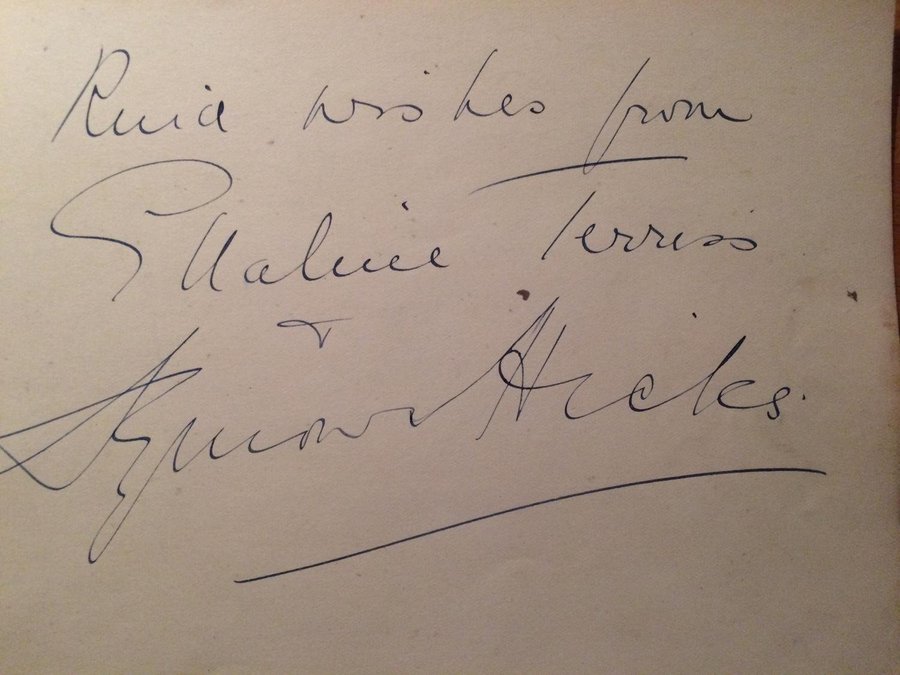 Kind wishes from
Ellaline Terriss
+
Seymour Hicks.